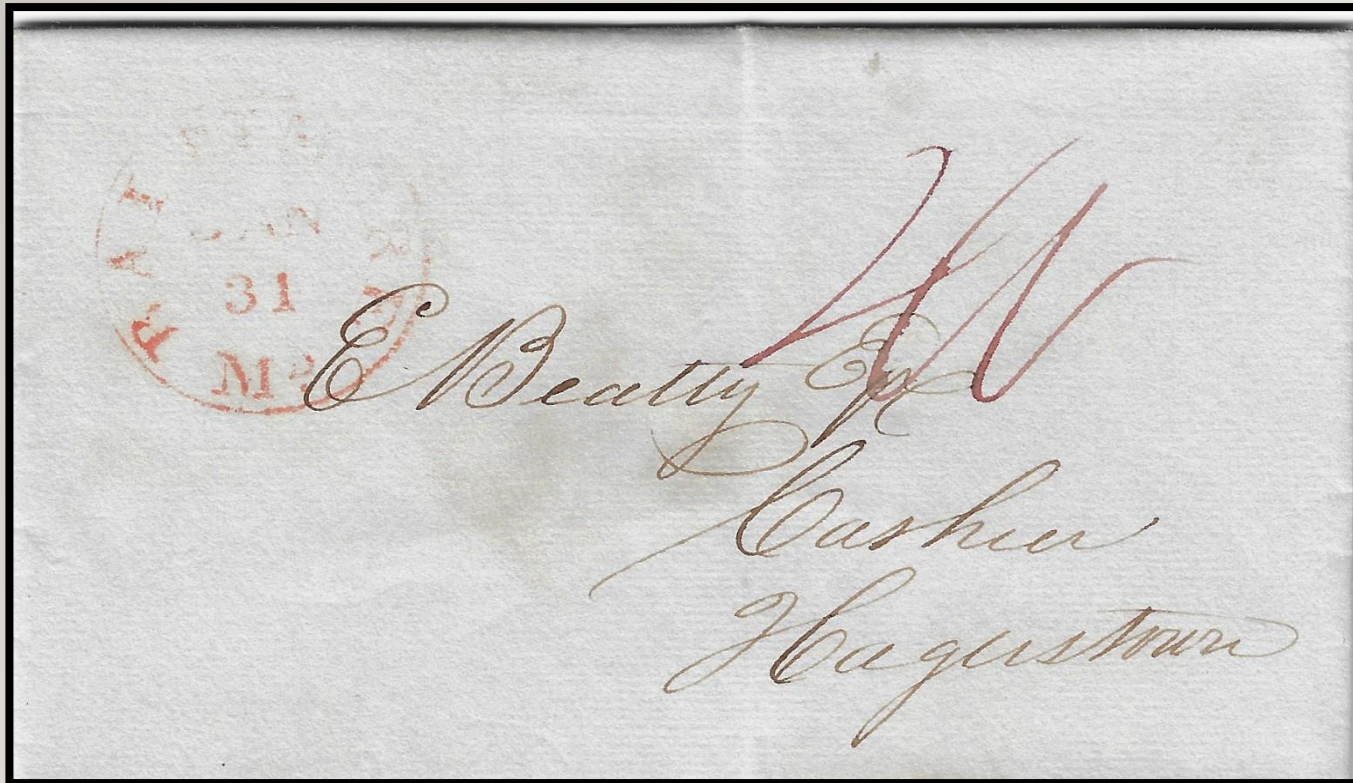 JAN
31
Md
E Beatty Esq
Cashier
Hagerstown